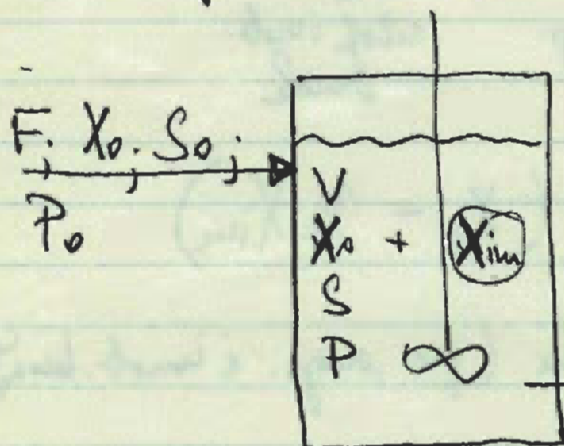 F, X₀, S₀,
P₀
V
X₀ + Xim
S
P